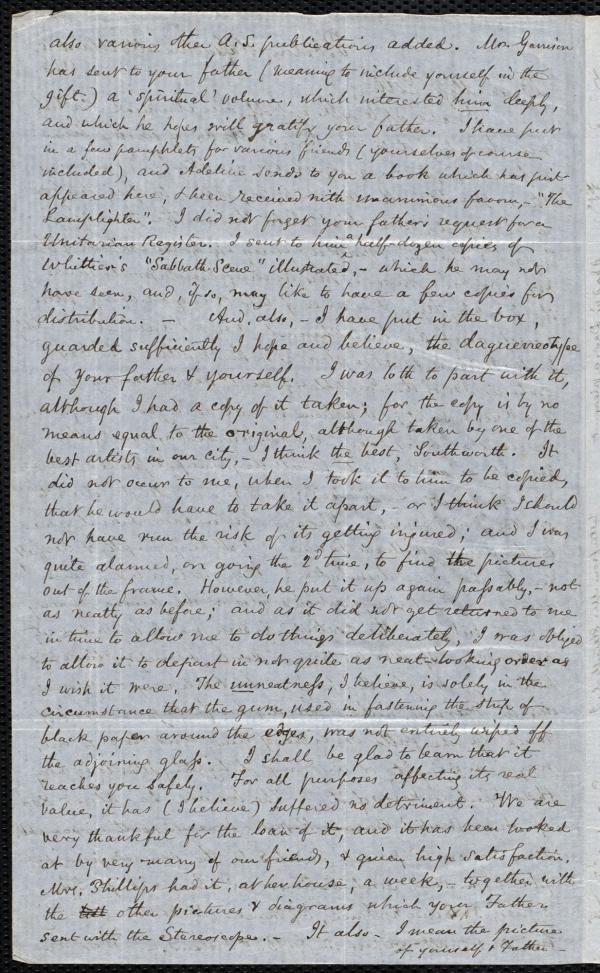 also various other A.S. publications added. Mr. Garrison
has sent to your father (meaning to include yourself in the
gift) a 'spiritual' volume, which interested him deeply,
and which he hopes will gratify your father. I have put
in a few pamphlets for various friends (yourselves of course
included), and Adeline sends to you a book which has just
appeared here, & been received with unanimous favor, - "The
Lamplighter". - I did not forget your father's request for a
Unitarian Register. I sent to him a half-dozen copies of
Whittier's "Sabbath Scene" illustrated, - which he may not
have seen, and, if so, may like to have a few copies for
distribution. - And, also, - I have put in the box,
guarded sufficiently I hope and believe, the daguerreotype
of your father & yourself. I was loth to part with it,
although I had a copy of it taken; for the copy is by no
means equal to the original, although taken by one of the
best artists in our city, - I think the best, Southworth. It
did not occur to me, when I took it to him to be copied,
that he would have to take it apart, - or I think I should
not have run the risk of its getting injured; and I was
quite alarmed, on going the 2d time, to find the pictures
out of the frame. However, he put it up again passably, - not
as neatly as before; and as it did not get returned to me
in time to allow me to do things deliberately, I was obliged
to allow it to depart in not quite as neat-looking order as
I wish it were. The unneatness, I believe, is solely in the
circumstance that the gum, used in fastening the strip of
black paper around the edges, was not entirely wiped off
the adjoining glass. I shall be glad to learn that it
reaches you safely. For all purposes affecting its real
value, it has (I believe) suffered no detriment. We are
very thankful for the loan of it, and it has been looked
at by very many of our friends, & given high satisfaction.
Mrs. Phillips had it, at her house, a week, - together with
the other pictures & diagrams which your Father
sent with the Stereoscope. - It also - I mean the picture
of yourself & Father -